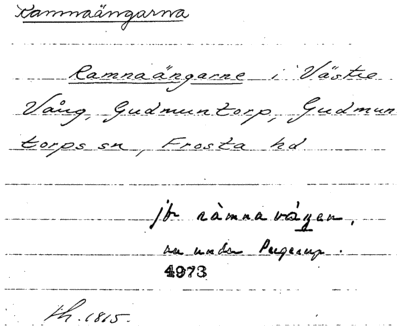 Ramnaängarna
Ramnaängarne i Västre
Vång, Gudmuntorp, Gudmun
torps sn, Frosta hd
jfr ràmnavágen,
se under Pugerup.
4973
Lh. 1815.